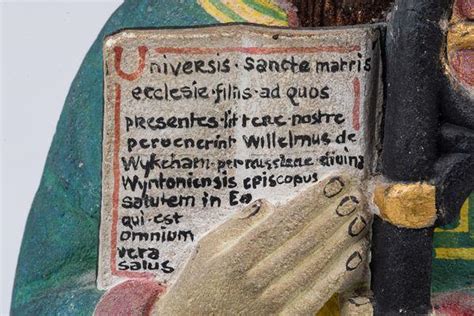 Universis · Sancte matris
ecclesie · filiis · ad quos
presentes · littere · nostre
pervenerint Willelmus de
Wykeham · permissione divina
Wyntoniensis episcopus
salutem in Eo
qui · est
omnium
vera
salus